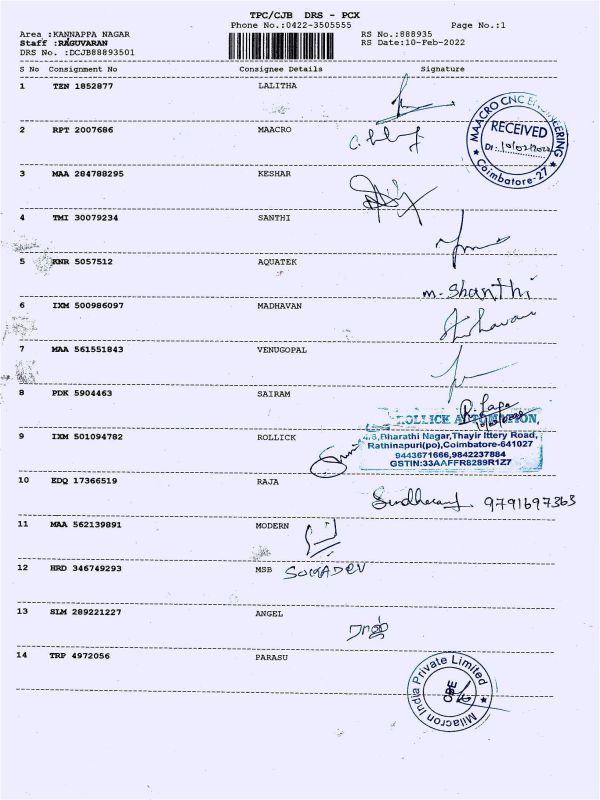 TPC/CJB DRS - PCX
Phone No.:0422-3505555 Page No.:1
Area :KANNAPPA NAGAR RS No.:888935
Staff :RAGUVARAN RS Date:10-Feb-2022
DRS No. :DCJB88893501
S No Consignment No Consignee Details Signature
1 TEN 1852877 LALITHA
2 RPT 2007686 MAACRO
MAACRO CNC ENGINEERING
RECEIVED
Dt.: 10/02/2022
Coimbatore-27
3 MAA 284788295 KESHAR
4 TMI 30079234 SANTHI
5 KNR 5057512 AQUATEK
m. Shanthi
6 IXM 500986097 MADHAVAN
7 MAA 561551843 VENUGOPAL
8 PDK 5904463 SAIRAM
ROLLICK AUTOMATION,
4/8,Bharathi Nagar,Thayir Ittery Road,
9 IXM 501094782 ROLLICK
Rathinapuri(po),Coimbatore-641027
9443671666,9842237884
GSTIN:33AAFFR8289R1Z7
10 EDQ 17366519 RAJA
9791697363
11 MAA 562139891 MODERN
12 HRD 346749293 MSB SOMADEV
13 SLM 289221227 ANGEL
14 TRP 4972056 PARASU
Milacron India Private Limited